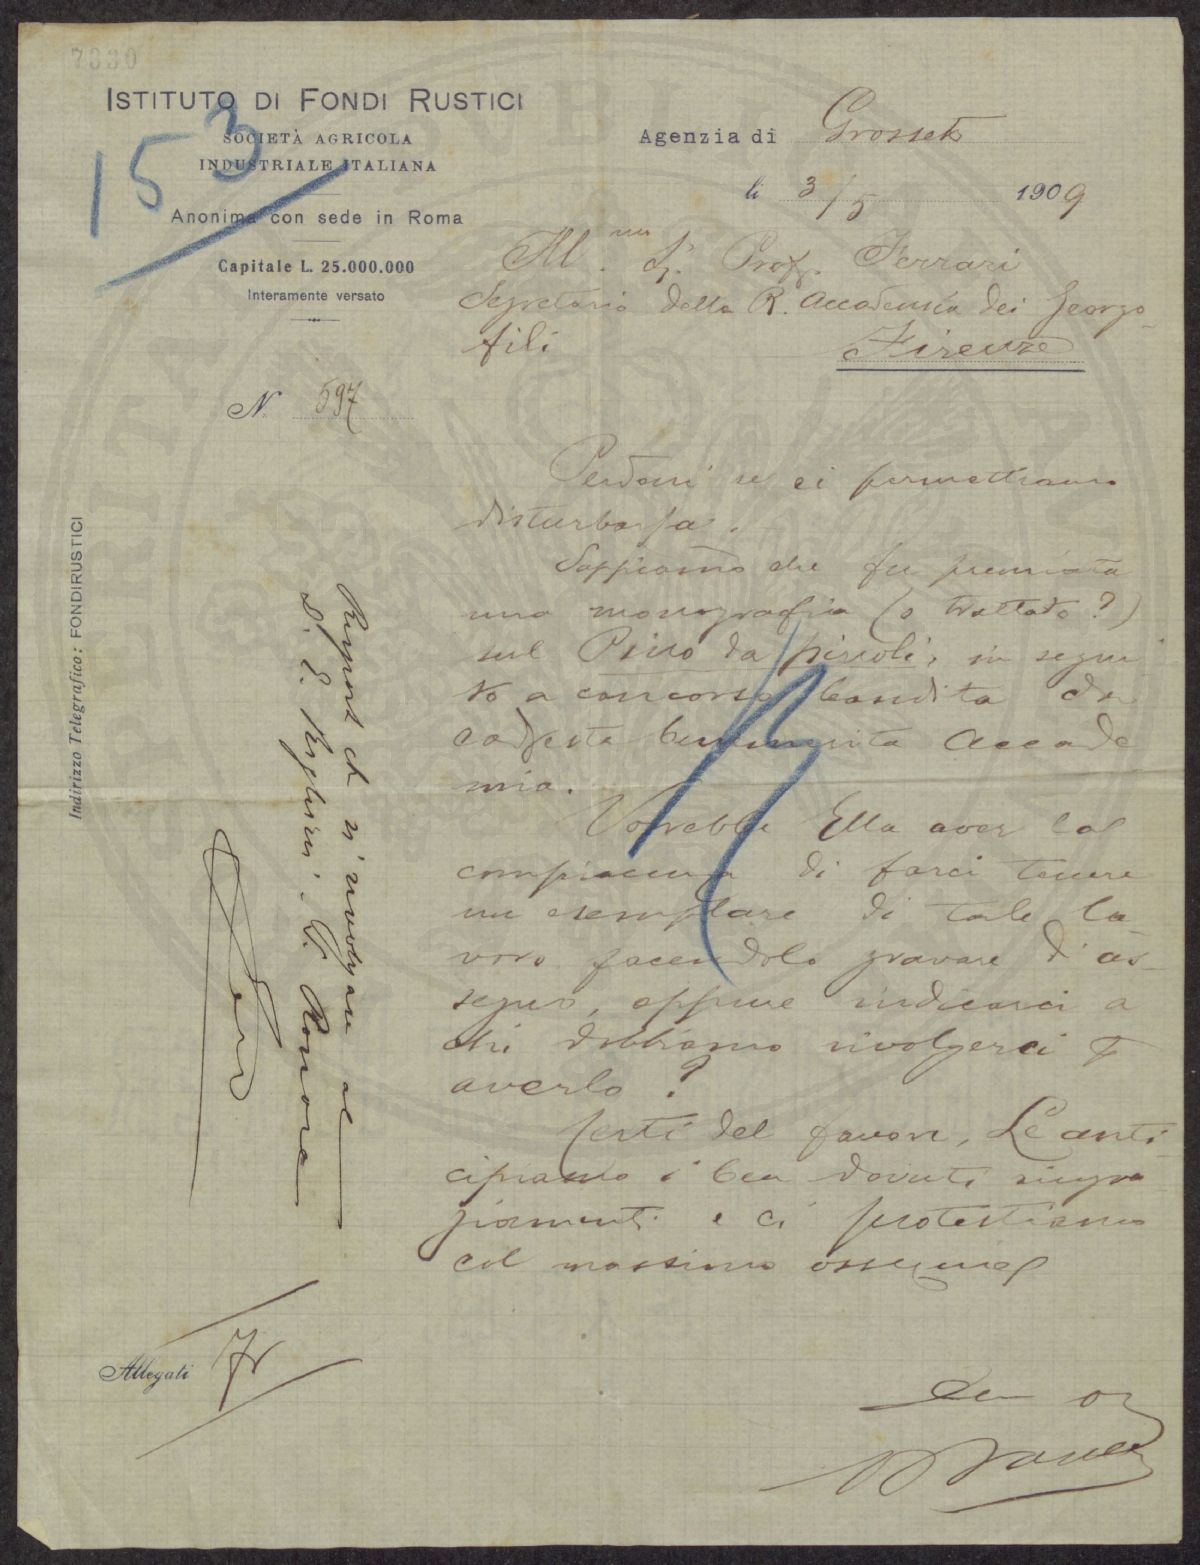 7330
ISTITUTO DI FONDI RUSTICI
SOCIETÀ AGRICOLA
INDUSTRIALE ITALIANA
Anonima con sede in Roma
Capitale L. 25.000.000
Interamente versato
153
Agenzia di Grosseto
li 3/5 1909
Ill.mo Sr. Prof. Ferrari
Segretario della R. Accademia dei Georgo-
fili
Firenze
N. 597
Indirizzo Telegrafico: FONDIRUSTICI
Perdoni se ci permettiamo
disturbarla.
Sappiamo che fu premiata
una monografia (o trattato?)
sul Pino da pinoli, in segui
to a concorso bandito da
codesta benemerita Accade
mia.
Vorrebbe Ella aver la
compiacenza di farci tenere
un esemplare di tale la
voro facendolo gravare d'as-
segno, oppure indicarci a
chi dobbiamo rivolgerci p
averlo?
Certi del favore, Le anti
cipiamo i ben dovuti ringra
ziamenti e ci protestiamo
col massimo ossequio
Rispost che si rivolgano al
D. E.
Allegati